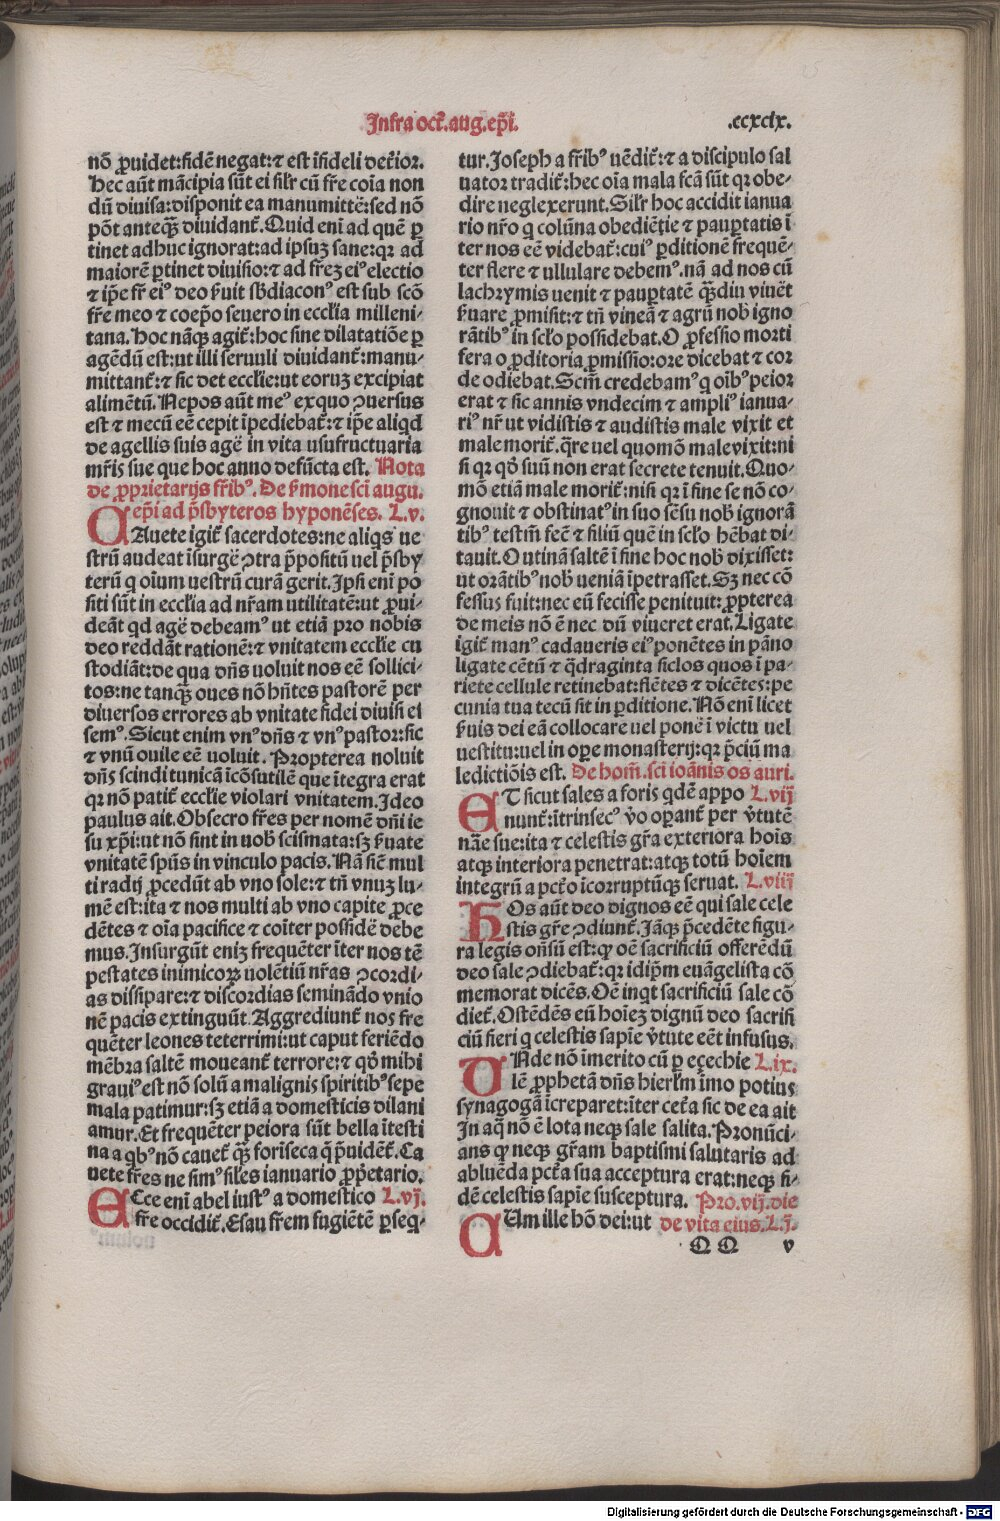 Infra oct̄.aug.ep̄i.
.ccxcix.
nō ꝓuidet:fidē negat:⁊ est īfideli det̄ior.
Hec aūt mācipia sūt ei sil̄r cū fr̄e coīa non
dū diuisa:disponit ea manumittē:sed nō
pōt anteqꝫ̄ diuidant̄.Quid enī ad quē ꝑ
tinet adhuc ignorat:ad ipsuꝫ sane:qꝛ ad
maiorē ꝑtinet diuisio:⁊ ad fr̄eꝫ eiꝰ electio
⁊ ip̄e fr̄ eiꝰ deo ẜuit sb̄diaconꝰ est sub scō
fr̄e meo ⁊ coep̄o seuero in eccl̄ia milleni-
tana.Hoc nāqꝫ agit̄:hoc sine dilatatiōe ꝑ
agēdū est:ut illi seruuli diuidant̄:manu-
mittant̄:⁊ sic det eccl̄ie:ut eoruꝫ excipiat
alimētū.Nepos aūt meꝰ exquo ꝯuersus
est ⁊ mecū eē cepit īpediebat̄:⁊ ip̄e aliqd
de agellis suis agē in vita usufructuaria
mr̄is sue que hoc anno defūcta est. Nota
de ꝓprietarijs fr̄ibꝰ. De ẜmone sci augu.
ep̄i ad p̄sbyteros hyponēses. L.v.
CAuete igit̄ sacerdotes:ne aliqs ue
strū audeat īsurgē ꝯtra p̄positū uel p̄sby
terū q oīum uestrū curā gerit.Ipsi enī po
siti sūt in eccl̄ia ad nr̄am utilitatē:ut ꝓui-
deāt qd agē debeamꝰ ut etiā pro nobis
deo reddāt rationē:⁊ vnitatem eccl̄ie cu
stodiāt:de qua dn̄s uoluit nos eē sollici-
tos:ne tanqꝫ̄ oues nō hn̄tes pastorē per
diuersos errores ab vnitate fidei diuisi ei
semꝰ.Sicut enim vnꝰ dn̄s ⁊ vnꝰ pastor:sic
⁊ vnū ouile eē uoluit. Propterea noluit
dn̄s scindi tunicā īcōsutilē que ītegra erat
qꝛ nō patit̄ eccl̄ie violari vnitatem.Ideo
paulus ait.Obsecro fr̄es per nomē dn̄i ie
su xp̄i:ut nō sint in uob̄ scismata:sꝫ ẜuate
vnitatē sp̄us in vinculo pacis.Nā sic̄ mul
ti radij ꝓcedūt ab vno sole:⁊ tn̄ vnuꝫ lu-
mē est:ita ⁊ nos multi ab vno capite ꝓce
dētes ⁊ oīa pacifice ⁊ coīter possidē debe
mus.Insurgūt enīꝫ frequēter īter nos tē
pestates inimicoꝝ uolētiū nr̄as ꝯcordi-
as dissipare:⁊ discordias semināndo vnio
nē pacis extinguūt.Aggrediunt̄ nos fre
quēter leones teterrimi:ut caput feriēdo
mēbra saltē moueant̄ terrore:⁊ qd̄ mihi
grauiꝰ est nō solū a malignis spiritibꝰ sepe
mala patimur:sꝫ etiā a domesticis dilani
amur.Et frequēter peiora sūt bella ītesti
na a qbꝰ nō cauet̄ qꝫ̄ foriseca q̄ p̄uidēt̄.Ca
uete fr̄es ne simꝰ sil̄es ianuario ꝓp̄etario.
ECce enī abel iustꝰ a domestico L.vj.
fr̄e occidit̄.Esau fr̄em fugiētē ꝑseq-
tur.Ioseph a fr̄ibꝰ uēdit̄:⁊ a discipulo sal
uator tradit̄:hec oīa mala fcā sūt qꝛ obe-
dire neglexerunt.Sil̄r hoc accidit ianua
rio nr̄o q colūna obediētie ⁊ pauꝑtatis ī
ter nos eē videbat̄:cuiꝰ ꝑditionē frequē-
ter flere ⁊ ullulare debemꝰ.nā ad nos cū
lachrymis uenit ⁊ pauꝑtatē qꝫ̄diu viuēt
ẜuare ꝓmisit:⁊ tn̄ vineā ⁊ agrū nob̄ igno
rātibꝰ in sclo possidebat.O ꝓfessio morti
fera o ꝓditoria ꝓmissio:ore dicebat ⁊ cor
de odiebat.Scm̄ credebamꝰ q oībꝰ peior
erat ⁊ sic annis vndecim ⁊ ampliꝰ ianua-
riꝰ nr̄ ut vidistis ⁊ audistis male vixit et
male morit̄.q̄re uel quomō male vixit:ni
si qꝛ qd̄ suū non erat secrete tenuit.Quo-
mō etiā male morit̄:nisi qꝛ ī fine se nō co-
gnouit ⁊ obstinatꝰ in suo sēsu nob̄ ignorā
tibꝰ testm̄ fecē ⁊ filiū quē in sclo hēbat di-
tauit.O utinā saltē ī fine hoc nob̄ dixisset:
ut orātibꝰ nob̄ ueniā īpetrasset.Sꝫ nec cō
fessus fuit:nec eū fecisse penituit:ꝓpterea
de meis nō ē nec dū viueret erat.Ligate
igit̄ manꝰ cadaueris eiꝰ ponētes in pāno
ligate cētū ⁊ q̄draginta siclos quos ī pa-
riete cellule retinebat:flētes ⁊ dicētes:pe
cunia tua tecū sit in ꝑditione.Nō enī licet
ẜuis dei eā collocare uel ponē ī victu uel
uestitu:uel in oꝑe monasterij:qꝛ p̄ciū ma
ledictiōis est. De hom̄.sci ioānis os auri.
ET sicut sales a foris qdē appo L.vij
nunt̄:ītrinsecꝰ v̄o oꝑant̄ per v̄tutē
nāe sue:ita ⁊ celestis gr̄a exteriora hoīs
atqꝫ interiora penetrat:atqꝫ totū hoīem
integrū a pct̄o īcorruptūqꝫ seruat. L.viij
HOs aūt deo dignos eē qui sale cele
stis gr̄e ꝯdiunt̄.Iāqꝫ p̄cedēte figu-
ra legis on̄sū est:qꝛ oē sacrificiū offerēdū
deo sale ꝯdiebat̄:qꝛ idip̄m euāgelista cō
memorat dicēs.Oē inqt sacrificiū sale cō
diet̄.Ostēdēs eū hoīeꝫ dignū deo sacrifi
ciū fieri q celestis sapīe v̄tute eēt infusus.
VNde nō īmerito cū ꝑ eçechie L.ix.
lē ꝓphetā dn̄s hierl̄m īmo potius
synagogā īcreparet:īter cet̄a sic de ea ait
In aq̄ nō ē lota neqꝫ sale salita.Pronūci-
ans q neqꝫ gr̄am baptismi salutaris ad
abluēda pct̄a sua acceptura erat:neqꝫ fi-
dē celestis sapīe susceptura. Pro.vij.die
CUm ille hō dei:ut de vita eius.L.j.
Q Q v
Digitalisierung gefördert durch die Deutsche Forschungsgemeinschaft - DFG